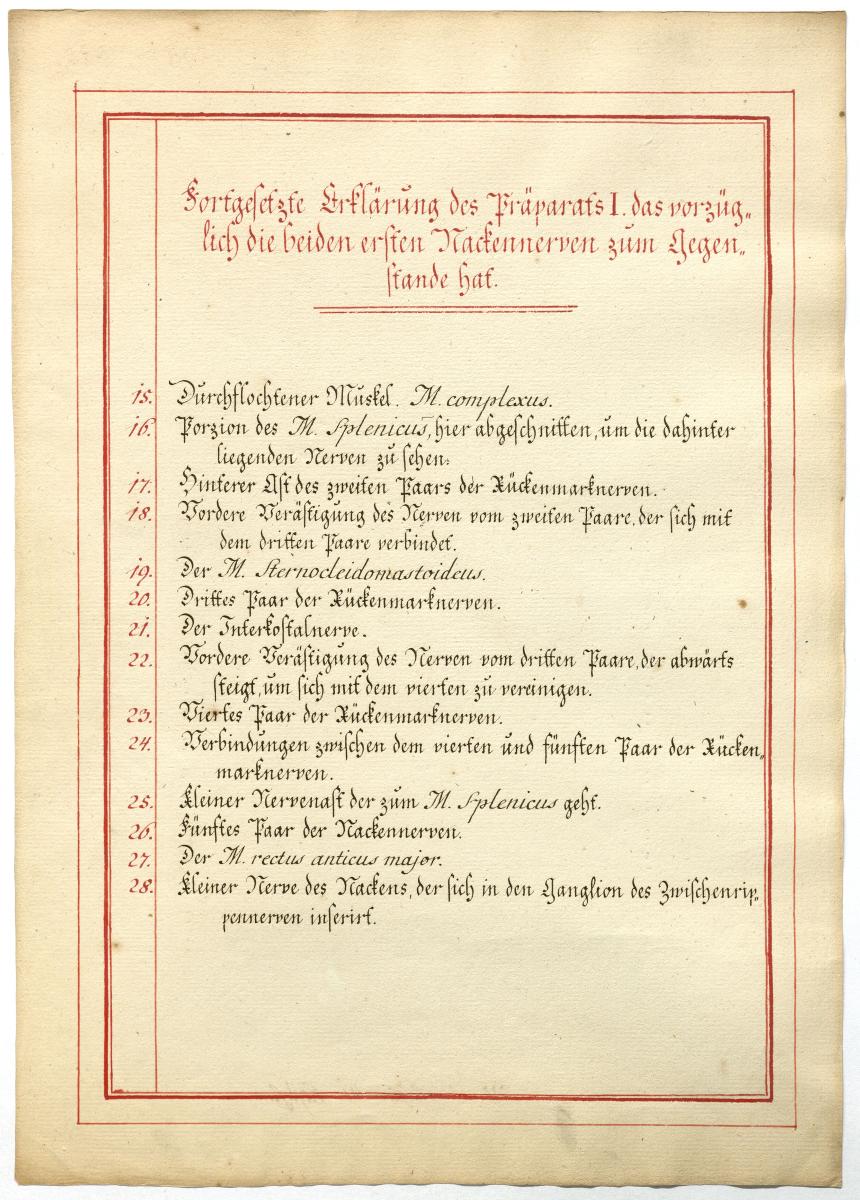 Fortgesetzte Erklärung des Präparats I. das vorzüg„
lich die beiden ersten Nackennerven zum Gegen„
stande hat.
15. Durchflochtener Muskel. M. complexus.
16. Porzion des M. Splenicus, hier abgeschnitten, um die dahinter
liegenden Nerven zu sehen.
17. Hinterer Ast des zweiten Paars der Rückenmarknerven.
18. Vordere Verästigung des Nerven vom zweiten Paare, der sich mit
dem dritten Paare verbindet.
19. Der M. Sternocleidomastoideus.
20. Drittes Paar der Rückenmarknerven.
21. Der Interkostalnerve.
22. Vordere Verästigung des Nerven vom dritten Paare, der abwärts
steigt, um sich mit dem vierten zu vereinigen.
23. Viertes Paar der Rückenmarknerven.
24. Verbindungen zwischen dem vierten und fünften Paar der Rücken„
marknerven.
25. Kleiner Nervenast der zum M. Splenicus geht.
26. Fünftes Paar der Nackennerven.
27. Der M. rectus anticus major.
28. Kleiner Nerve des Nackens, der sich in den Ganglion des Zwischenrip„
pennerven inserirt.